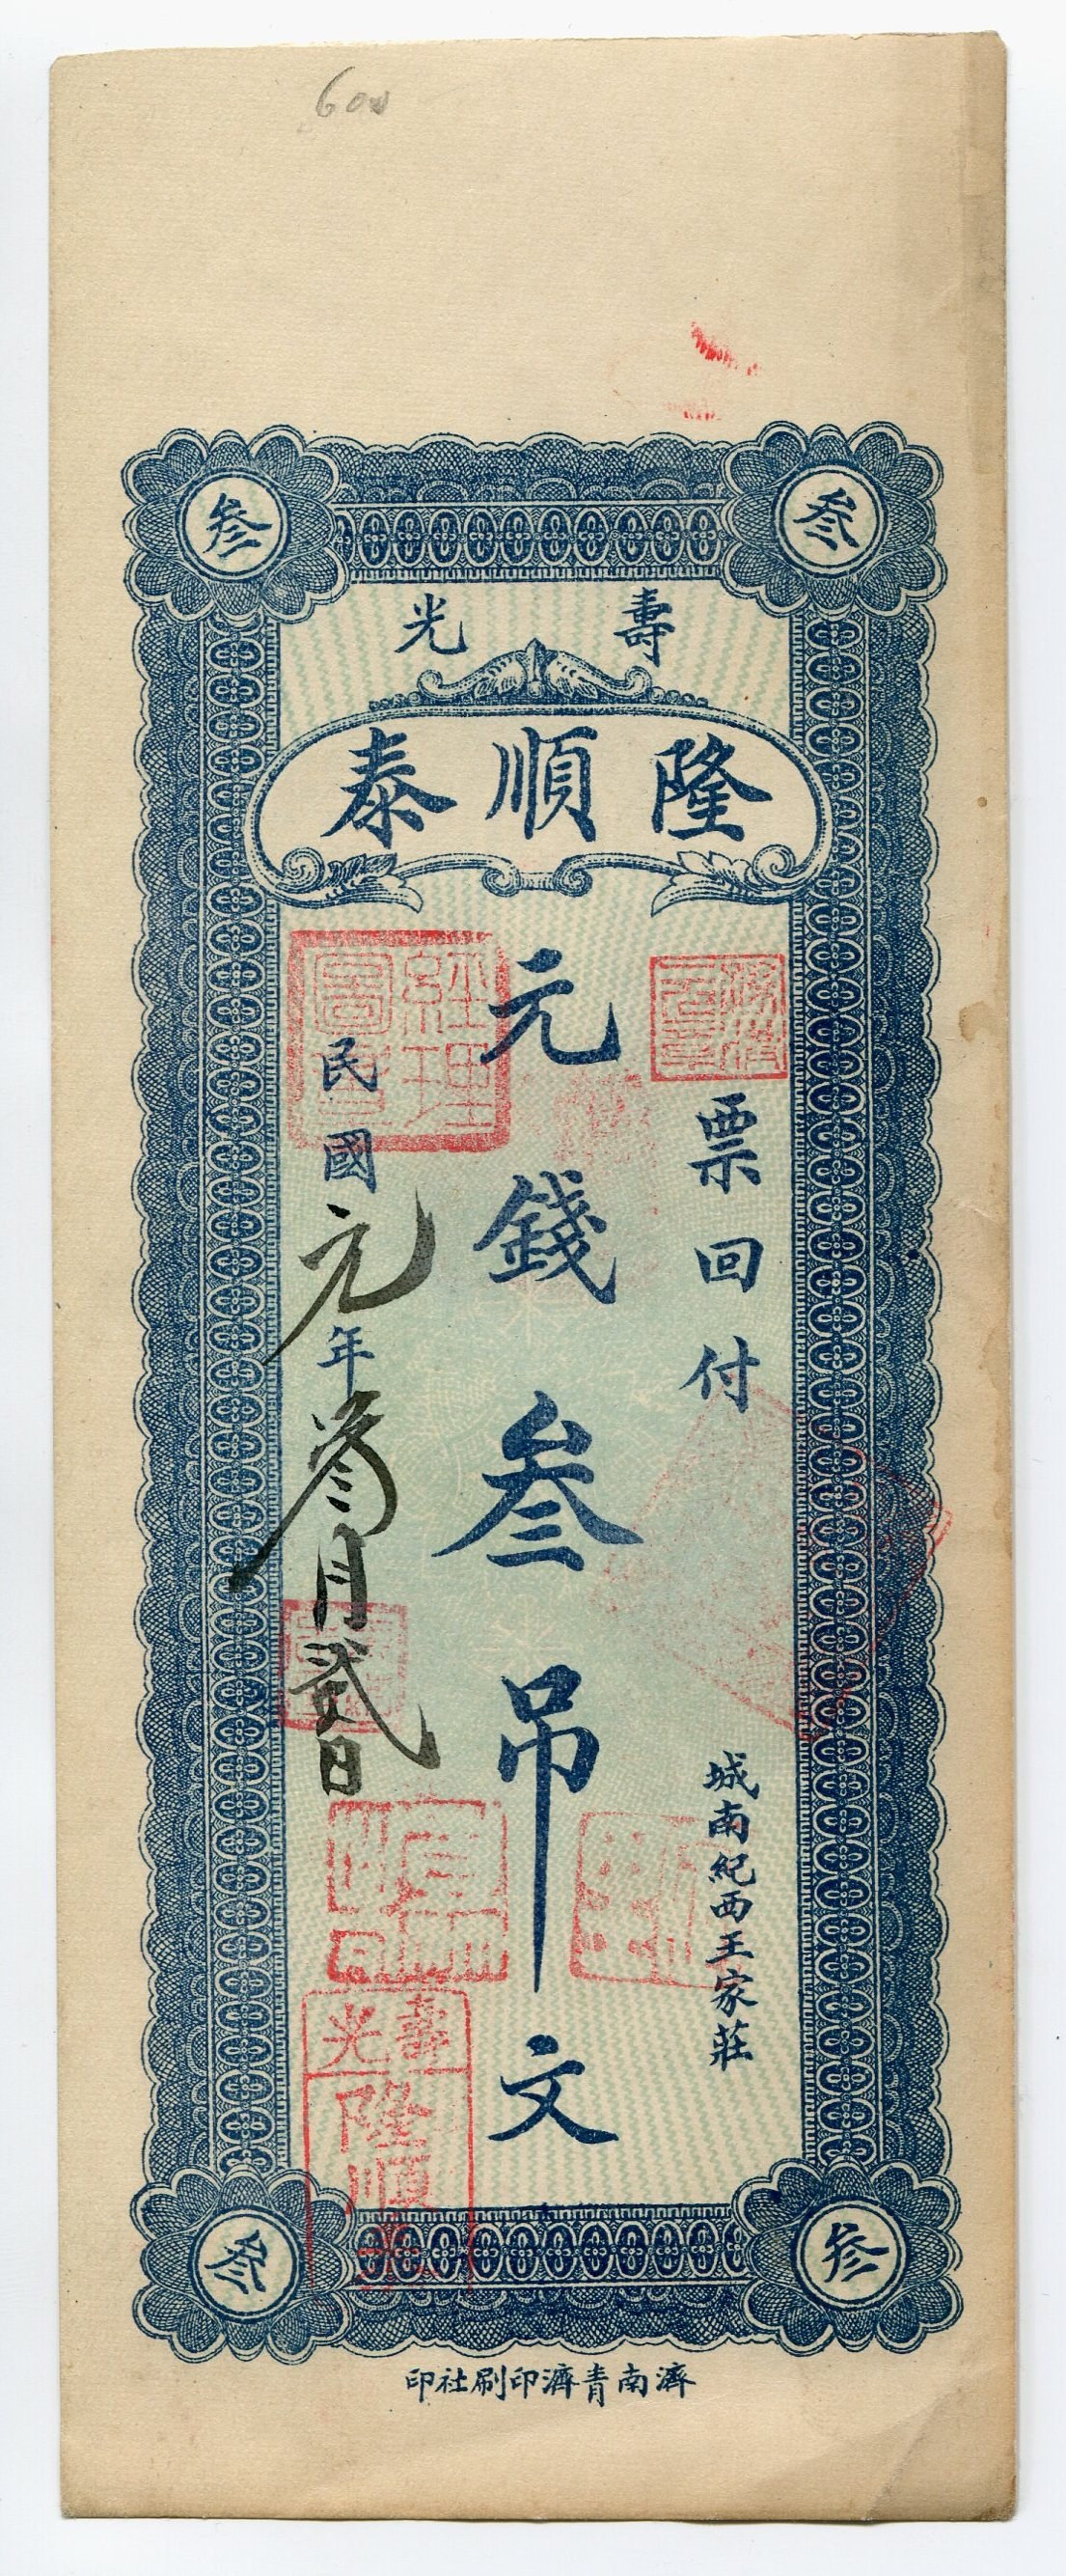 600
叁 叁
壽光
隆順泰
票回付
城南紀西王家莊
元錢叁吊文
民國元年叁月貳日
經理圖章
壽光
隆順
叁 叁
濟南青濟印刷社印